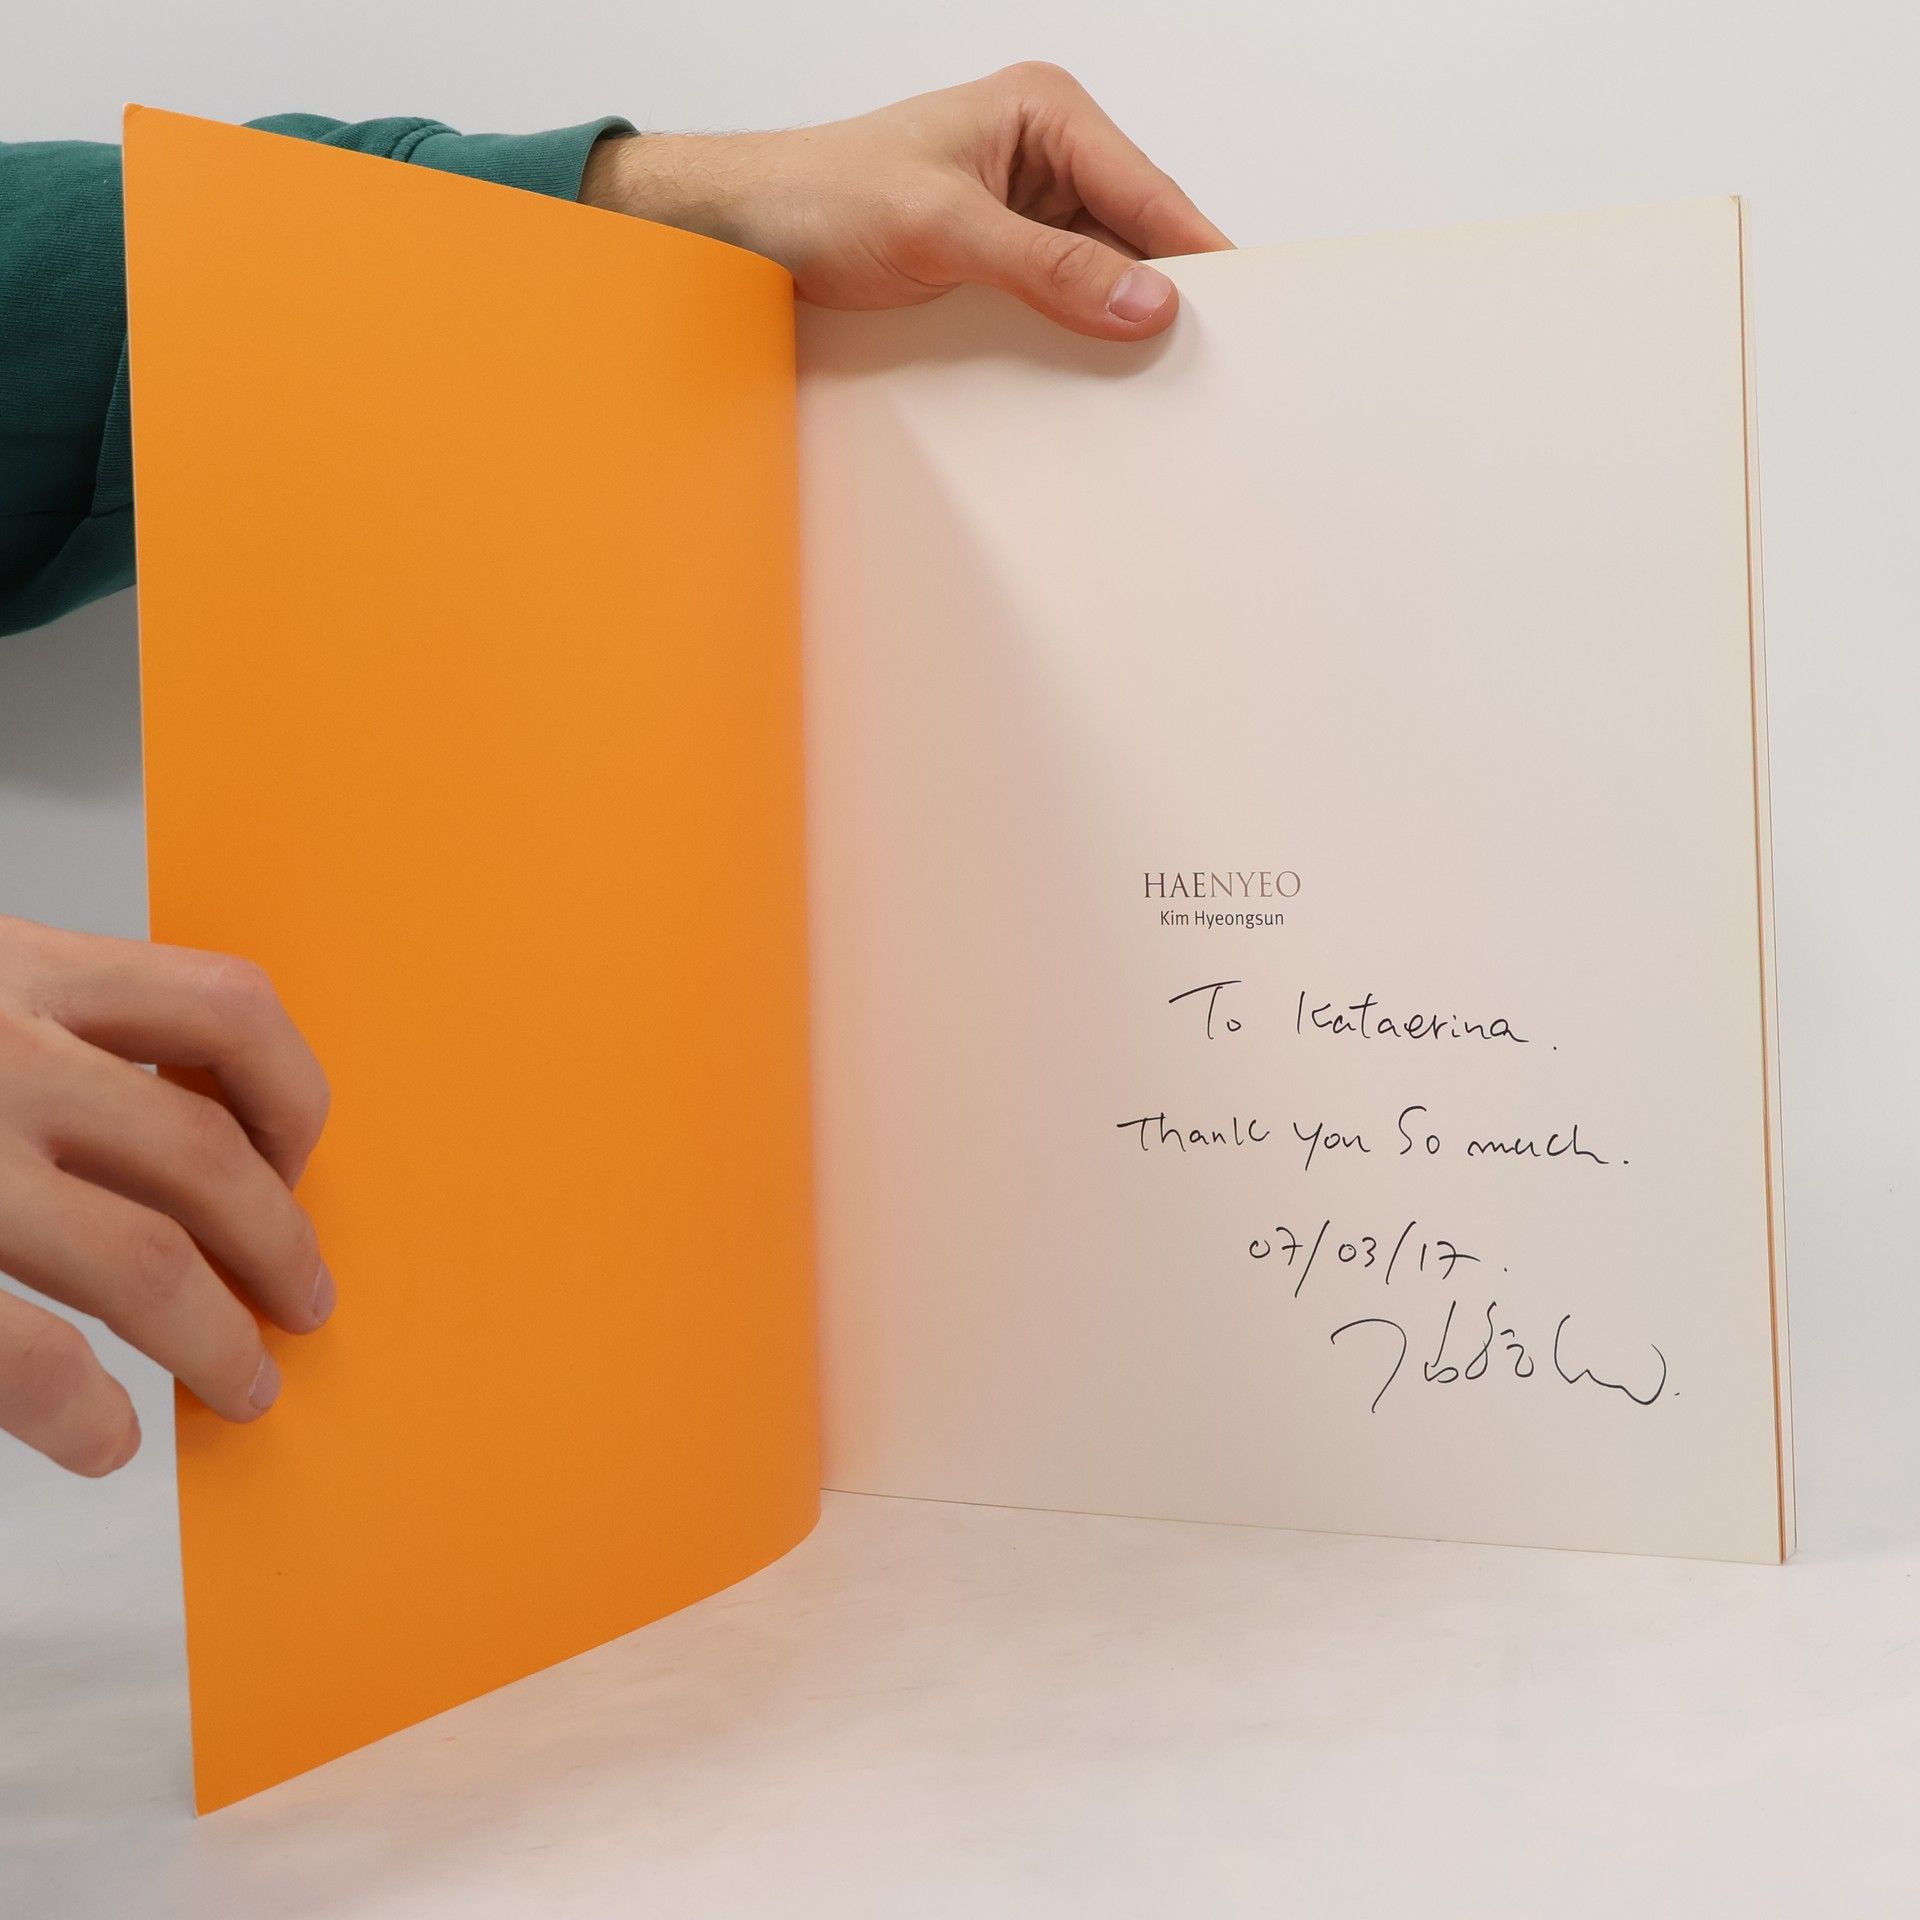 HAENYEO
Kim Hyeongsun
To Kataerina.
Thank you so much.
07/03/17.